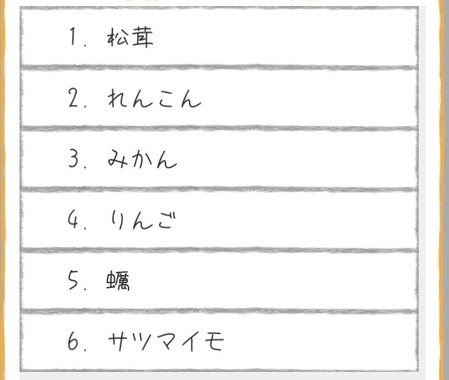 1. 松茸
2. れんこん
3. みかん
4. りんご
5. 蠣
6. サツマイモ